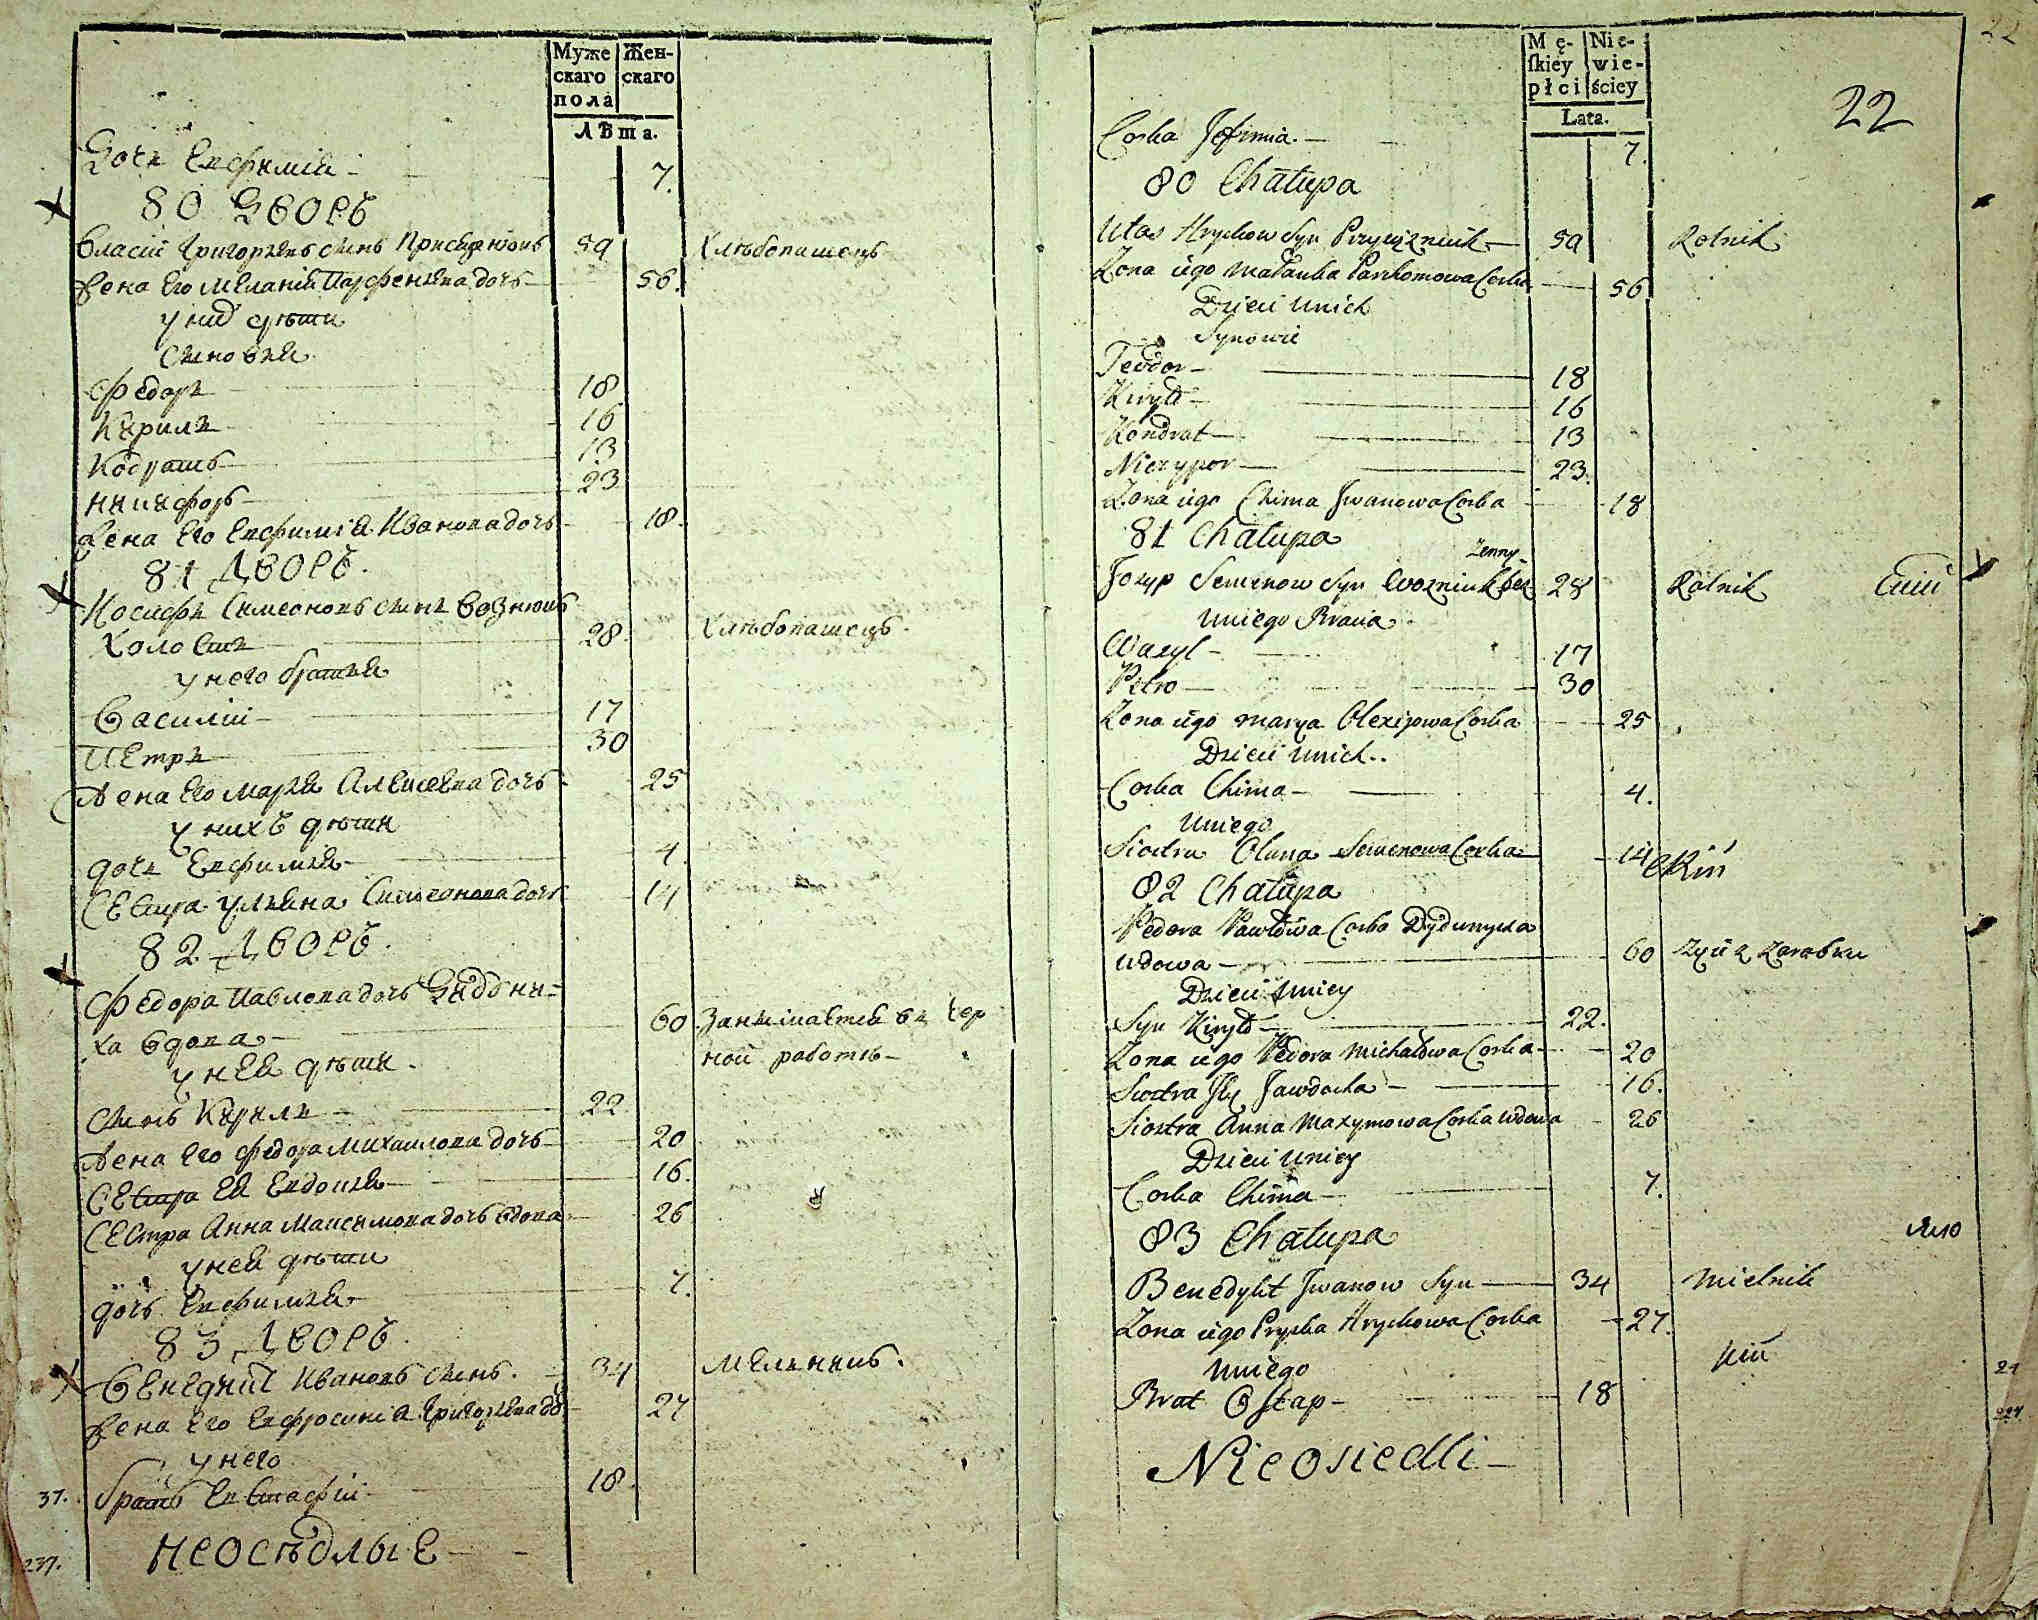 Муже Жен-
скаго скаго
пола
Лѣта.
Дочь Евфимія 7.
80 Дворъ
Власій Григорьевъ сынъ 59 Хлѣбопашецъ
Жена Его Меланія Парфеньева дочь 56.
у них дѣти
Сыновья
Федоръ 18
Кирилъ 16
Кодратъ 13
Никифоръ 23
Жена Его Евфимія Иванова дочь 18.
81 Дворъ.
Иосифъ Симеоновъ сынъ Вознюкъ
Холостъ 28. Хлѣбопашецъ.
у него братья
Василій 17
Петръ 30
Жена Его Марья Алексеева дочь 25
у нихъ дѣти
дочь Евфимья 4.
Сестра Ульяна Симеонова дочь 14
82 Дворъ.
Федора Павлова дочь
ха вдова 60 Занимается въ чер
у нея дѣти. ной работѣ
Сынъ Кирилъ 22
Жена Его Федора Михаилова дочь 20
Сестра Ея Евдокія 16.
Сестра Анна Максимова дочь вдова 26
у нея дѣти
дочь Евфимья 7.
83 Дворъ.
Бенедикт Ивановъ Сынъ. 34 Мельникъ.
Жена Его Евфросинія Григорьева до 27
у него
37. братъ Евстафій 18.
237. Неосѣдлые
22
Mę- Nie-
skiey wie-
płci ściey
Lata.
22
Corka Jefimia. 7.
80 Chałupa
Ułas Hryckow Syn 59 Rolnik
Zona iego Małanka Parchomowa Corka 56
Dzieci unich
Synowie
Teodor 18
Kiryło 16
Kondrat 13
Niczypor 23.
Zona iego Chima Jwanowa Corka 18
81 Chałupa
Zenny
Jozyp Semenow Syn Wozniuk bez 28 Rolnik
uniego Bracia.
Wasyl 17
Petro 30
Zona iego Marya Olexijowa Corka 25
Dzieci unich..
Corka Chima 4.
uniego
Siostra Olana Semenowa Corka 14
82 Chałupa
Fedora Pawłowa Corka Dydunycha
wdowa 60 Zyie z Zarobku
Dzieci uniey
Syn Kiryło 22.
Zona iego Fedora Michałowa Corka 20
Siostra Jey Jawdocha 16.
Siostra Anna Maxymowa Corka wdowa 26
Dzieci uniey
Corka Chima 7.
83 Chałupa
Benedykt Jwanow Syn 34 Mielnik
Zona iego Pryska Hryckowa Corka 27.
uniego
Brat Ostap 18
Nieosiedli